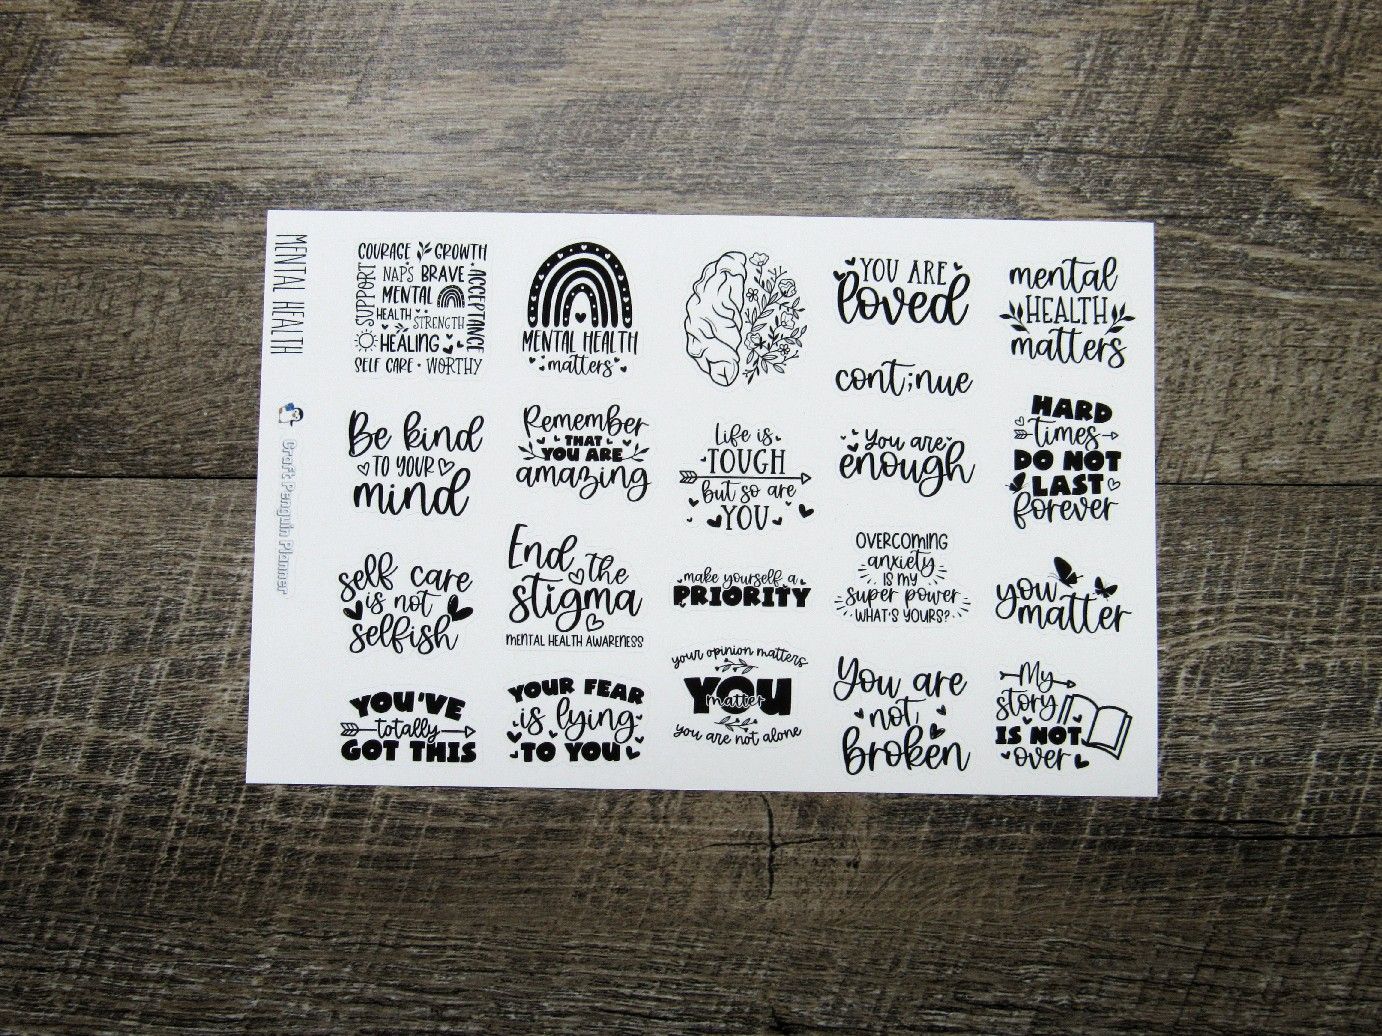 MENTAL HEALTH
Craft Penguin Planner
COURAGE GROWTH
SUPPORT
NAPS BRAVE
MENTAL
HEALTH
STRENGTH
ACCEPTANCE
HEALING
SELF CARE • WORTHY
MENTAL HEALTH
matters
YOU ARE
loved
cont;nue
mental
HEALTH
matters
Be kind
TO YOUR
mind
Remember
THAT
YOU ARE
amazing
life is
TOUGH
but so are
YOU
You are
enough
HARD
times
DO NOT
LAST
forever
self care
is not
selfish
End the
stigma
MENTAL HEALTH AWARENESS
make yourself a
PRIORITY
OVERCOMING
anxiety
IS MY
super power
WHAT'S YOURS?
you
matter
YOU'VE
totally
GOT THIS
YOUR FEAR
is lying
TO YOU
your opinion matters
YOU
matter
you are not alone
You are
not
broken
My
story
IS NOT
over